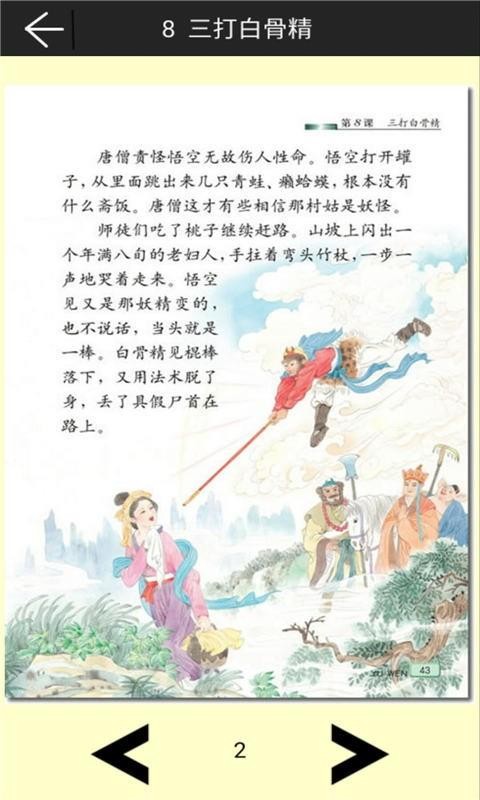 8 三打白骨精
第8课 三打白骨精
唐僧责怪悟空无故伤人性命。悟空打开罐
子，从里面跳出来几只青蛙、癞蛤蟆，根本没有
什么斋饭。唐僧这才有些相信那村姑是妖怪。
师徒们吃了桃子继续赶路。山坡上闪出一
个年满八旬的老妇人，手拄着弯头竹杖，一步一
声地哭着走来。悟空
见又是那妖精变的，
也不说话，当头就是
一棒。白骨精见棍棒
落下，又用法术脱了
身，丢了具假尸首在
路上。
YU WEN 43
2